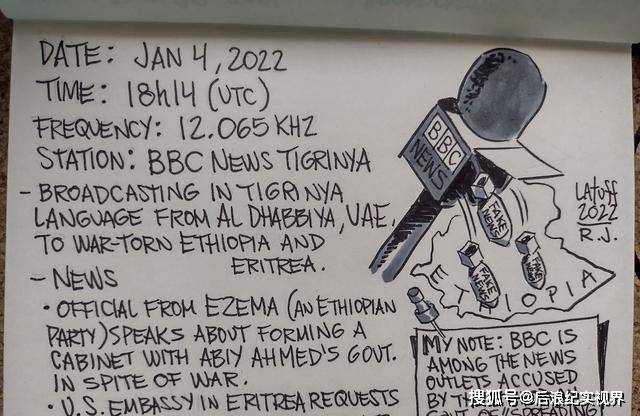 DATE: JAN 4, 2022
TIME: 18h14 (UTC)
FREQUENCY: 12.065 KHZ
STATION: BBC NEWS TIGRINYA
- BROADCASTING IN TIGRINYA
LANGUAGE FROM AL DHABBIYA, UAE,
TO WAR-TORN ETHIOPIA AND
ERITREA.
- NEWS
• OFFICIAL FROM EZEMA (AN ETHIOPIAN
PARTY) SPEAKS ABOUT FORMING A
CABINET WITH ABIY AHMED'S GOVT.
IN SPITE OF WAR.
• U.S. EMBASSY IN ERITREA REQUESTS
BBC
NEWS
FAKE
NEWS
FAKE
NEWS
FAKE
NEWS
ETHIOPIA
LATUFF
2022
R.J.
MY NOTE: BBC IS
AMONG THE NEWS
OUTLETS ACCUSED
BY THE
搜狐号@后浪纪实视界